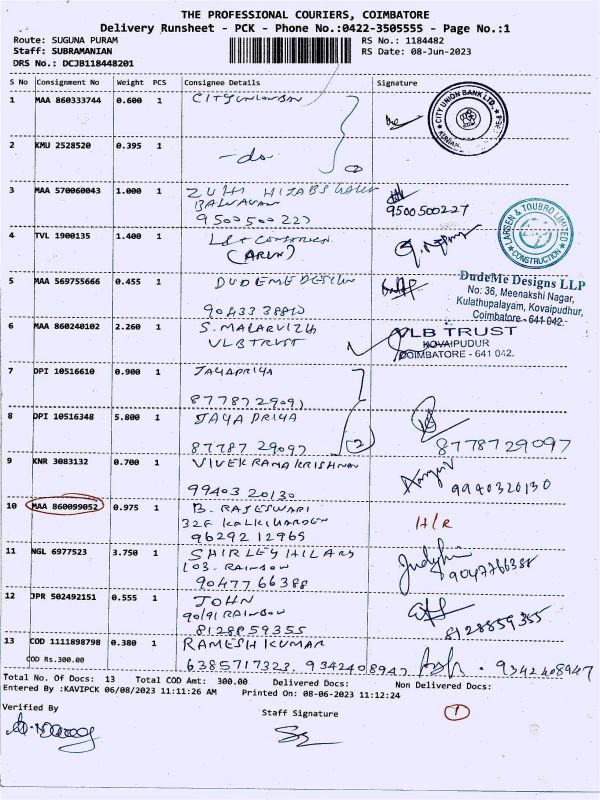 THE PROFESSIONAL COURIERS, COIMBATORE
Delivery Runsheet - PCK - Phone No.:0422-3505555 - Page No.:1
Route: SUGUNA PURAM RS No.: 1184482
Staff: SUBRAMANIAN RS Date: 08-Jun-2023
DRS No.: DCJB118448201
S No Consignment No Weight PCS Consignee Details Signature
1 MAA 860333744 0.600 1
CITY UNION BANK LTD.
2 KMU 2528520 0.395 1 -do-
3 MAA 570060043 1.000 1 ZUHI HIZABS
9500500227 9500500227
4 TVL 1900135 1.400 1 L&T
(ARUN)
LARSEN & TOUBRO LIMITED
CONSTRUCTION
5 MAA 569755666 0.455 1 DUDEME DESIGN
90433 38810
DudeMe Designs LLP
No: 36, Meenakshi Nagar,
Kulathupalayam, Kovaipudhur,
Coimbatore - 641 042
6 MAA 860240102 2.260 1 S. MALARVIZH
VLB TRUST
VLB TRUST
KOVAIPUDUR
COIMBATORE - 641 042.
7 DPI 10516610 0.900 1 JAYAPRIYA
87787 29097
8 DPI 10516348 5.800 1 JAYA PRIYA
87787 29097 (2) 8778729097
9 KNR 3083132 0.700 1 VIVEK RAMA KRISHNAN
99403 20130 9940320130
10 MAA 860099052 0.975 1 B. RAJESWARI
H/R
96292 12965
11 NGL 6977523 3.750 1 SHIRLEY HILARY
103. RAINBOW
90477 66388 9047766388
12 JPR 502492151 0.555 1 JOHN
90/91 RAINBOW
8128859355 8128859355
13 COD 1111898798 0.380 1 RAMESH KUMAR
COD Rs.300.00 6385717323, 9342408947 9342408947
Total No. Of Docs: 13 Total COD Amt: 300.00 Delivered Docs: Non Delivered Docs:
Entered By :KAVIPCK 06/08/2023 11:11:26 AM Printed On: 08-06-2023 11:12:24
1
Verified By Staff Signature